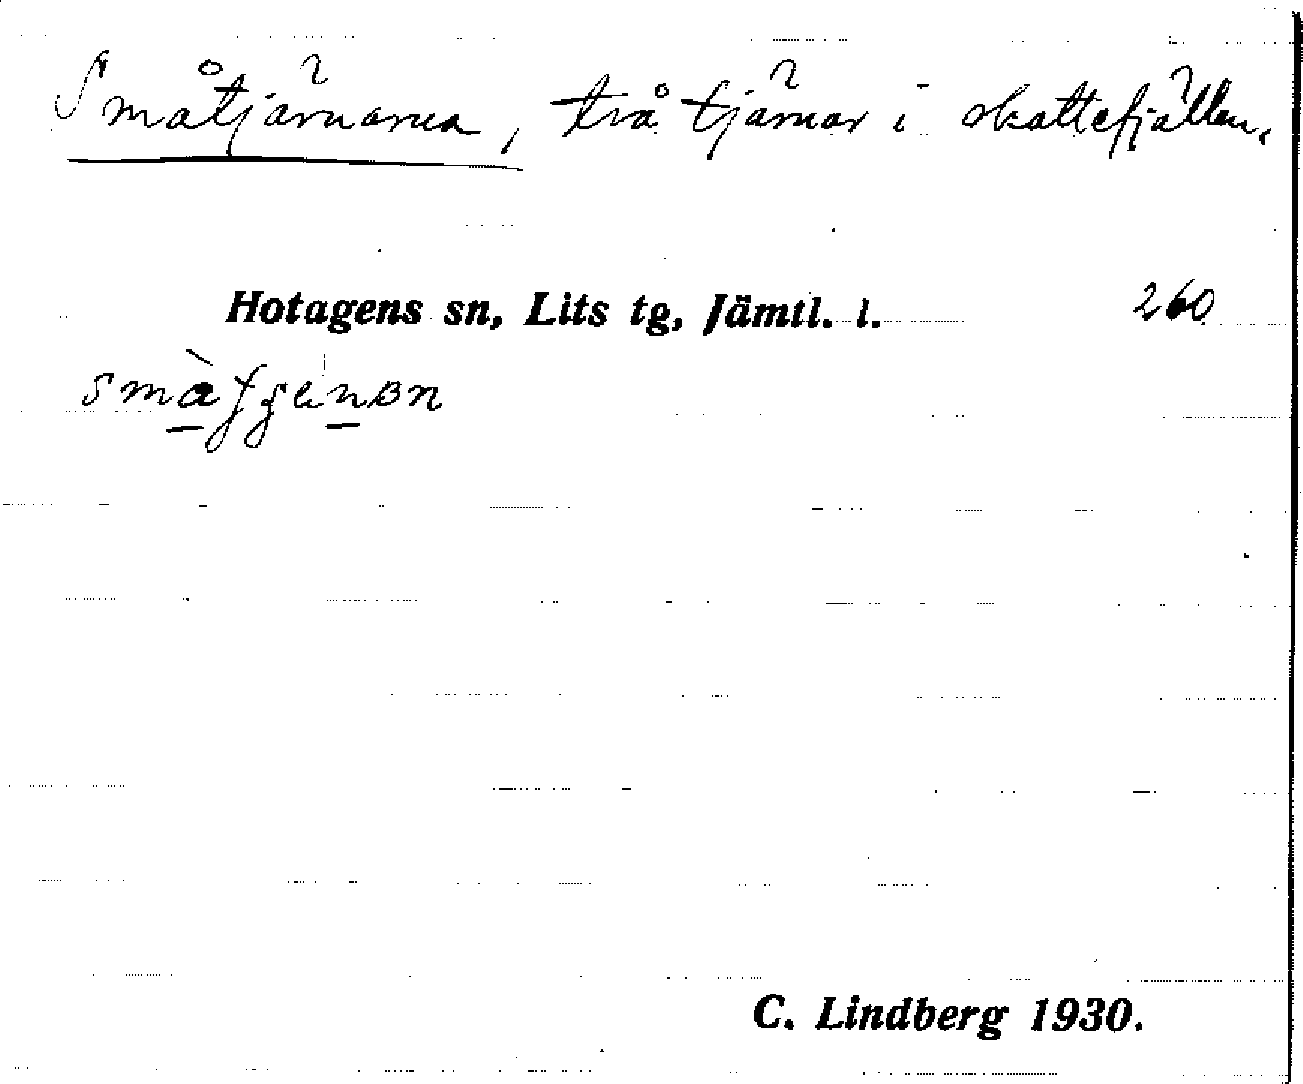 Småtjärnarna, två tjärnar i skattefjällen.
Hotagens sn, Lits tg, Jämtl. l. 260
C. Lindberg 1930.